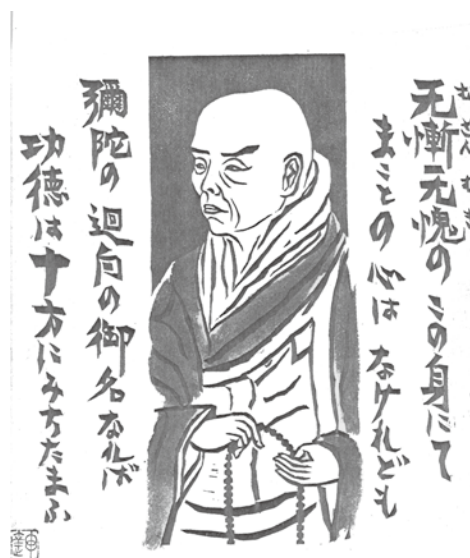 无慚无愧のこの身にて
まことの心はなけれども
彌陀の迴向の御名なれば
功徳は十方にみちたまふ